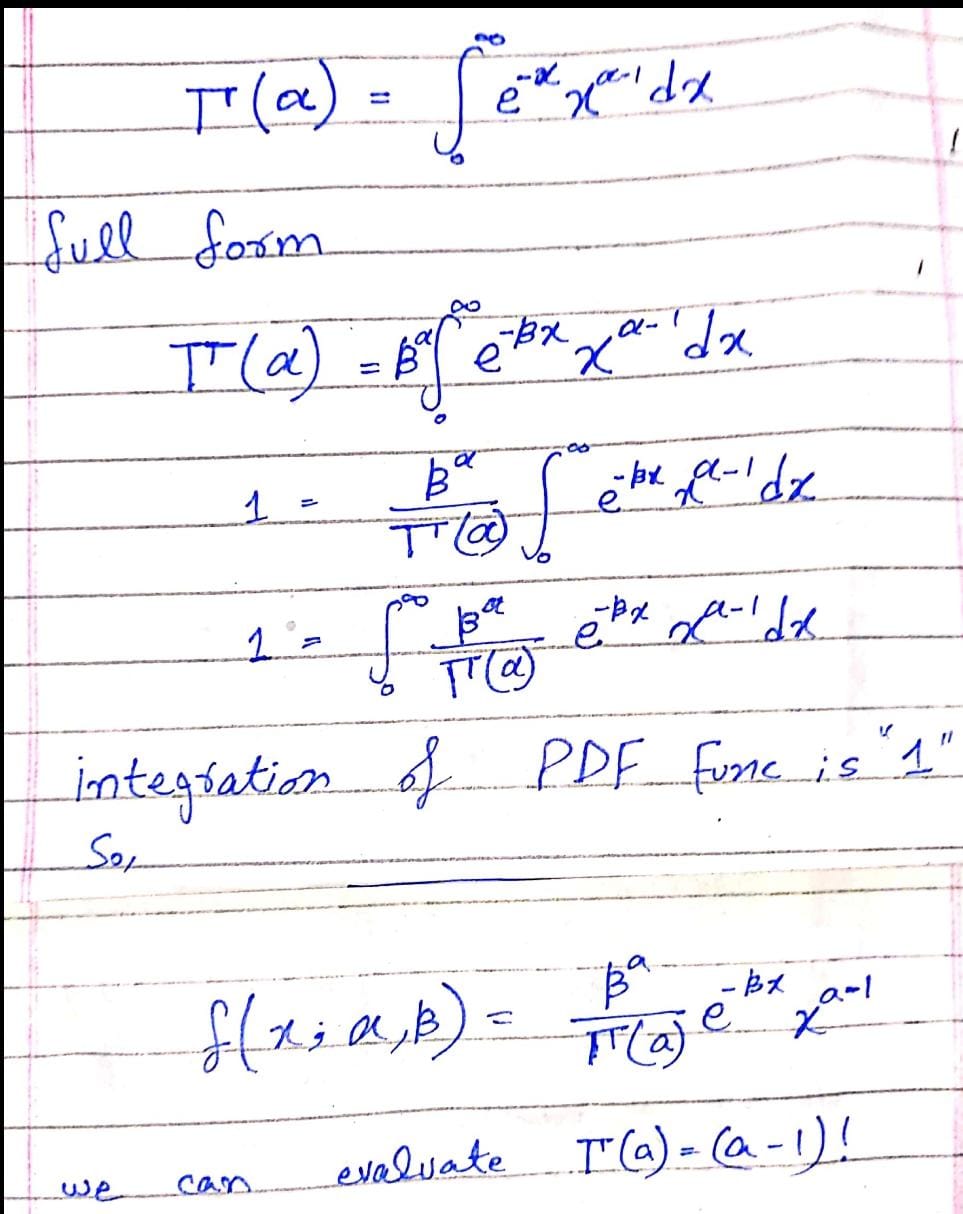 Γ(α) = ∫₀^∞ e^{-x} x^{α-1} dx
full form
Γ(α) = β^α ∫₀^∞ e^{-βx} x^{α-1} dx
1 = β^α / Γ(α) ∫₀^∞ e^{-βx} x^{α-1} dx
1 = ∫₀^∞ β^α / Γ(α) e^{-βx} x^{α-1} dx
integration of PDF func is "1"
So,
f(x; α, β) = β^a / Γ(a) e^{-βx} x^{a-1}
we can evaluate Γ(a) = (a-1)!